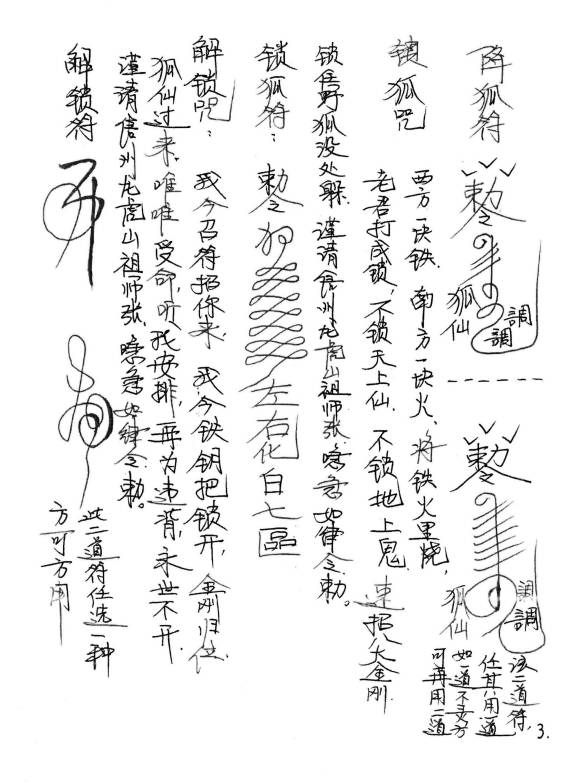 降狐符
敕令
狐仙
調
調
敕令
狐仙
調
調
这二道符,
任其用一道
如一道不灵方
可再用二道
锁狐咒
西方一块铁、南方一块火、将铁火里烧,
老君打成锁,不锁天上仙、不锁地上鬼、速招八大金刚
锁住野狐没处躲、谨请信州龙虎山祖师张、嚓急如律令、敕。
锁狐符:
敕令
左右化白七
解锁咒:
我今召符招你来、我今铁钥把锁开,金刚归位、
狐仙过来、唯唯受命,听我安排,再为违背,永世不开、
谨请信州龙虎山祖师张、嚓急如律令、敕。
解锁符
此二道符任选一种
方可方用
3.